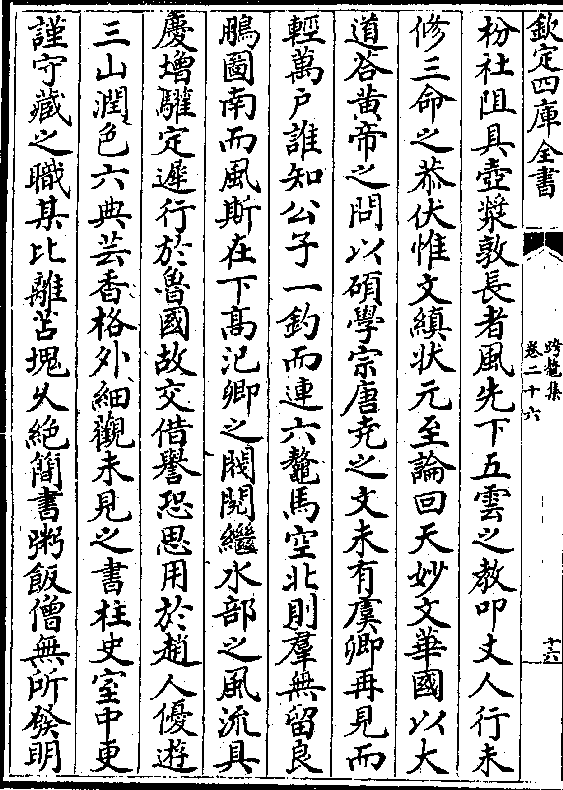 欽定四庫全書
跨鼇集
卷二十六
十六
枌社阻具壺漿敦長者風先下五雲之教叩丈人行未
修三命之恭伏惟文縝狀元至論回天妙文華國以大
道答黄帝之問以碩學宗唐尭之文未有虞卿再見而
輕萬户誰知公子一釣而連六鼇馬空北則羣無留良
鵬圖南而風斯在下髙汜卿之閥閲繼水部之風流具
慶増驩定遲行於魯國故交借譽恐思用於趙人優遊
三山潤色六典芸香格外細觀未見之書柱史室中更
謹守藏之職某比離苫塊久絶簡書粥飯僧無所發明